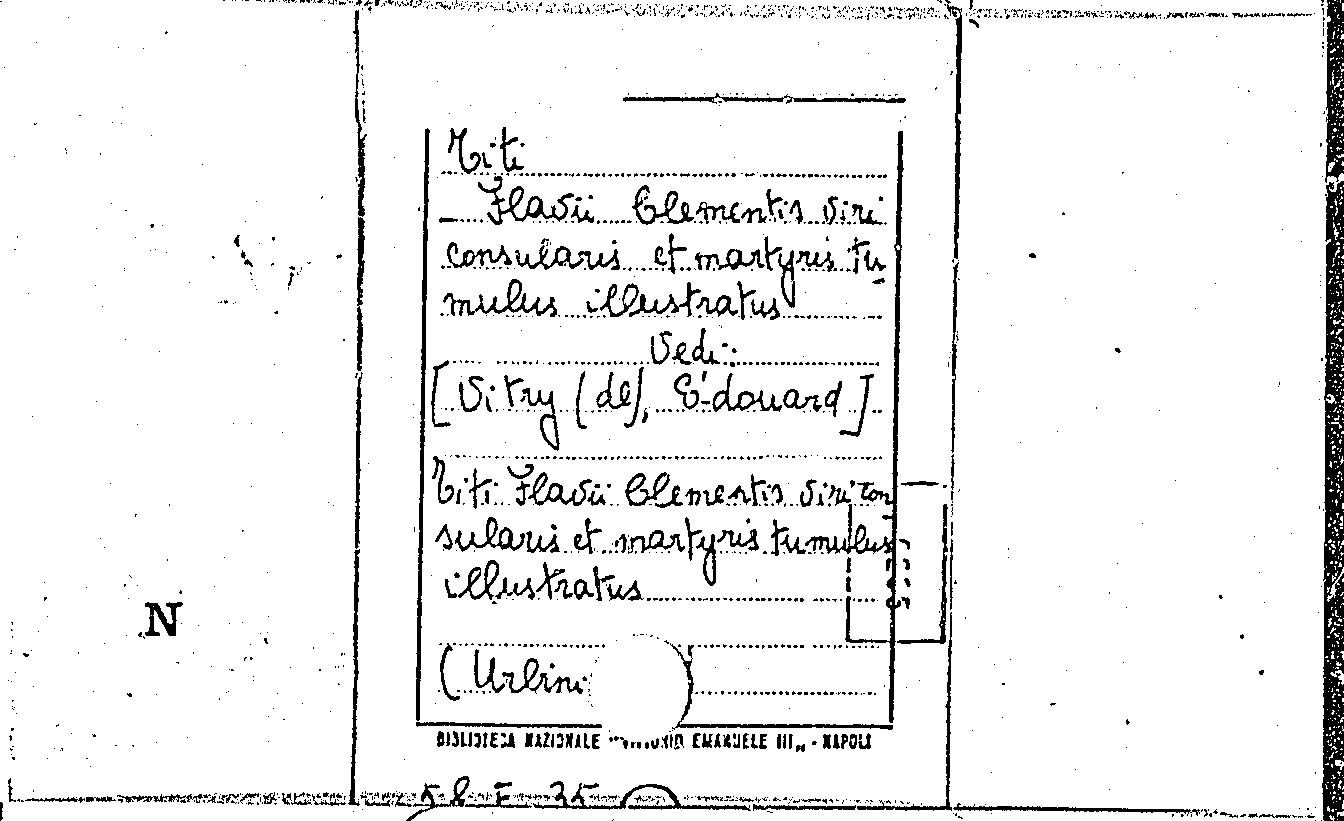 Titi
Flavii Clementis viri
consularis et martyris tu-
mulus illustratus
Vedi:
[Vitry (de), Édouard]
Titi Flavii Clementis viri con-
sularis et martyris tumulus
illustratus
(Urbini
N
BIBLIOTECA NAZIONALE "VITTORIO EMANUELE III" - NAPOLI